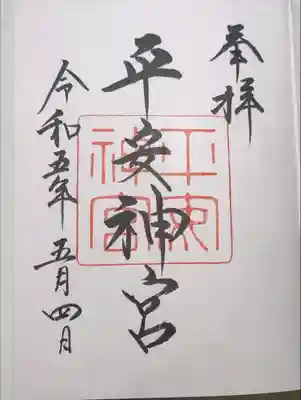 奉拝
平安神宮
平安神宮
令和五年五月四日